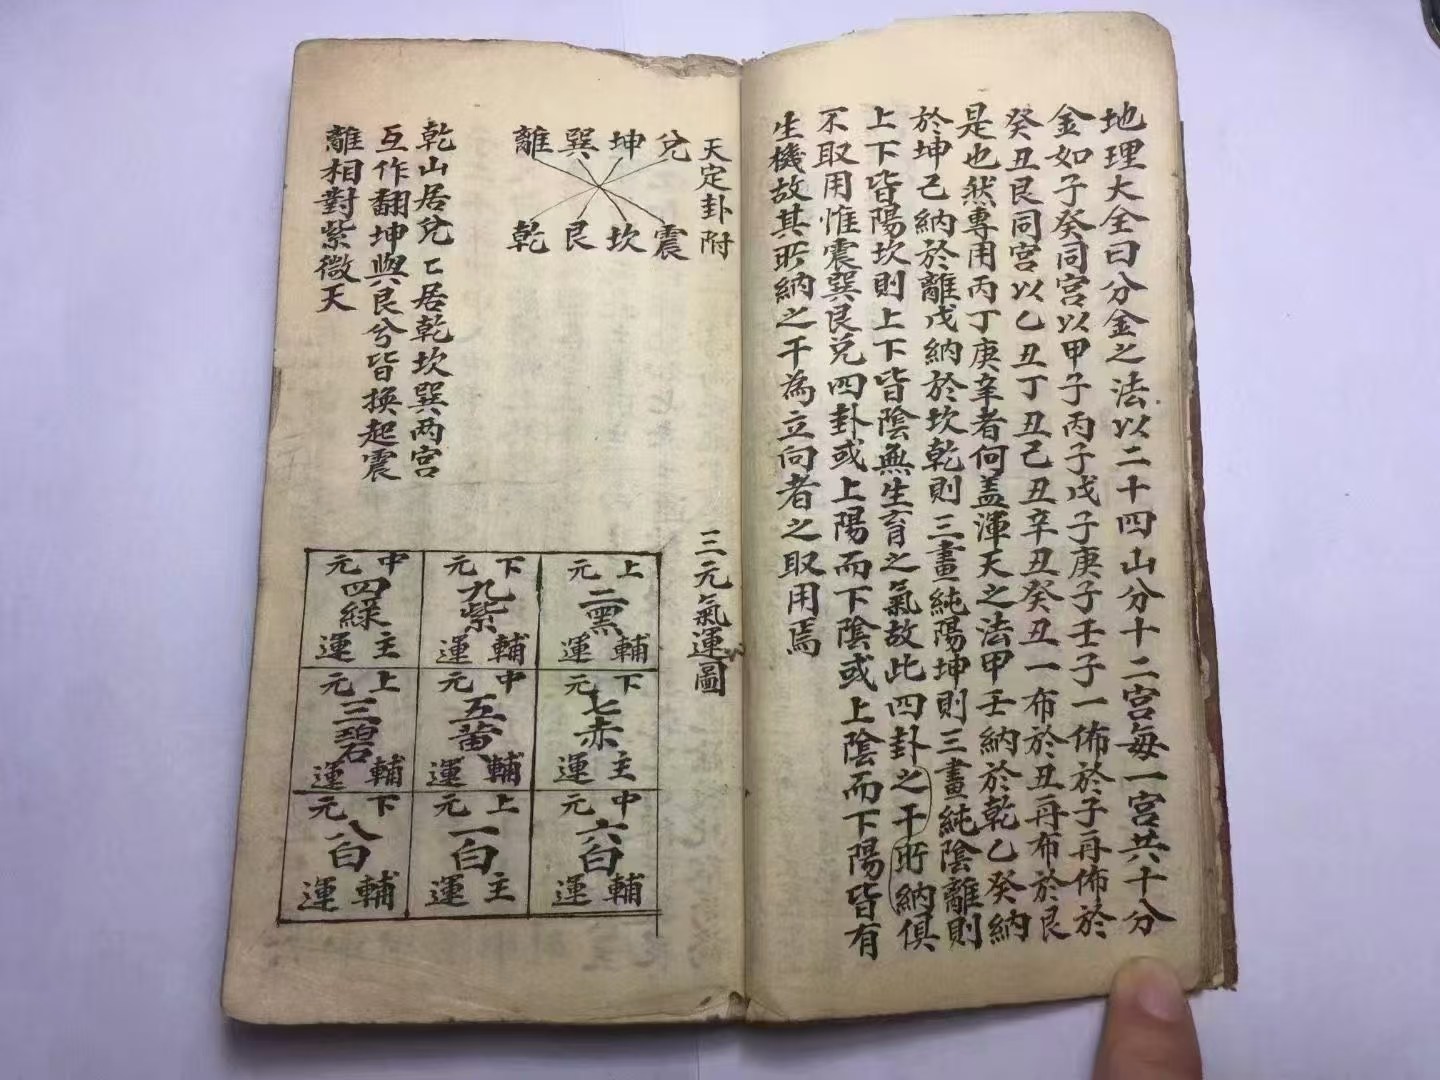 地理大全曰分金之法以二十四山分十二宮每一宮共十分
金如子癸同宮以甲子丙子戊子庚子壬子一佈於子再佈於
癸丑艮同宮以乙丑丁丑己丑辛丑癸丑一布於丑再布於艮
是也然專用丙丁庚辛者何盖渾天之法甲壬納於乾乙癸納
於坤己納於離戊納於坎乾則三畫純陽坤則三畫純陰離則
上下皆陽坎則上下皆陰無生育之氣故此四卦之干所納俱
不取用惟震巽艮兌四卦或上陽而下陰或上陰而下陽皆有
生機故其所納之干為立向者之取用焉
天定卦附
兌坤巽離
震坎艮乾
乾山居兌乙居乾坎巽两宮
互作翻坤與艮兮皆換起震
離相對紫微天
三元氣運圖
上元二黑輔運
下元九紫輔運
中元四綠主運
下元七赤主運
中元五黄輔運
上元三碧輔運
中元六白輔運
上元一白主運
下元八白輔運